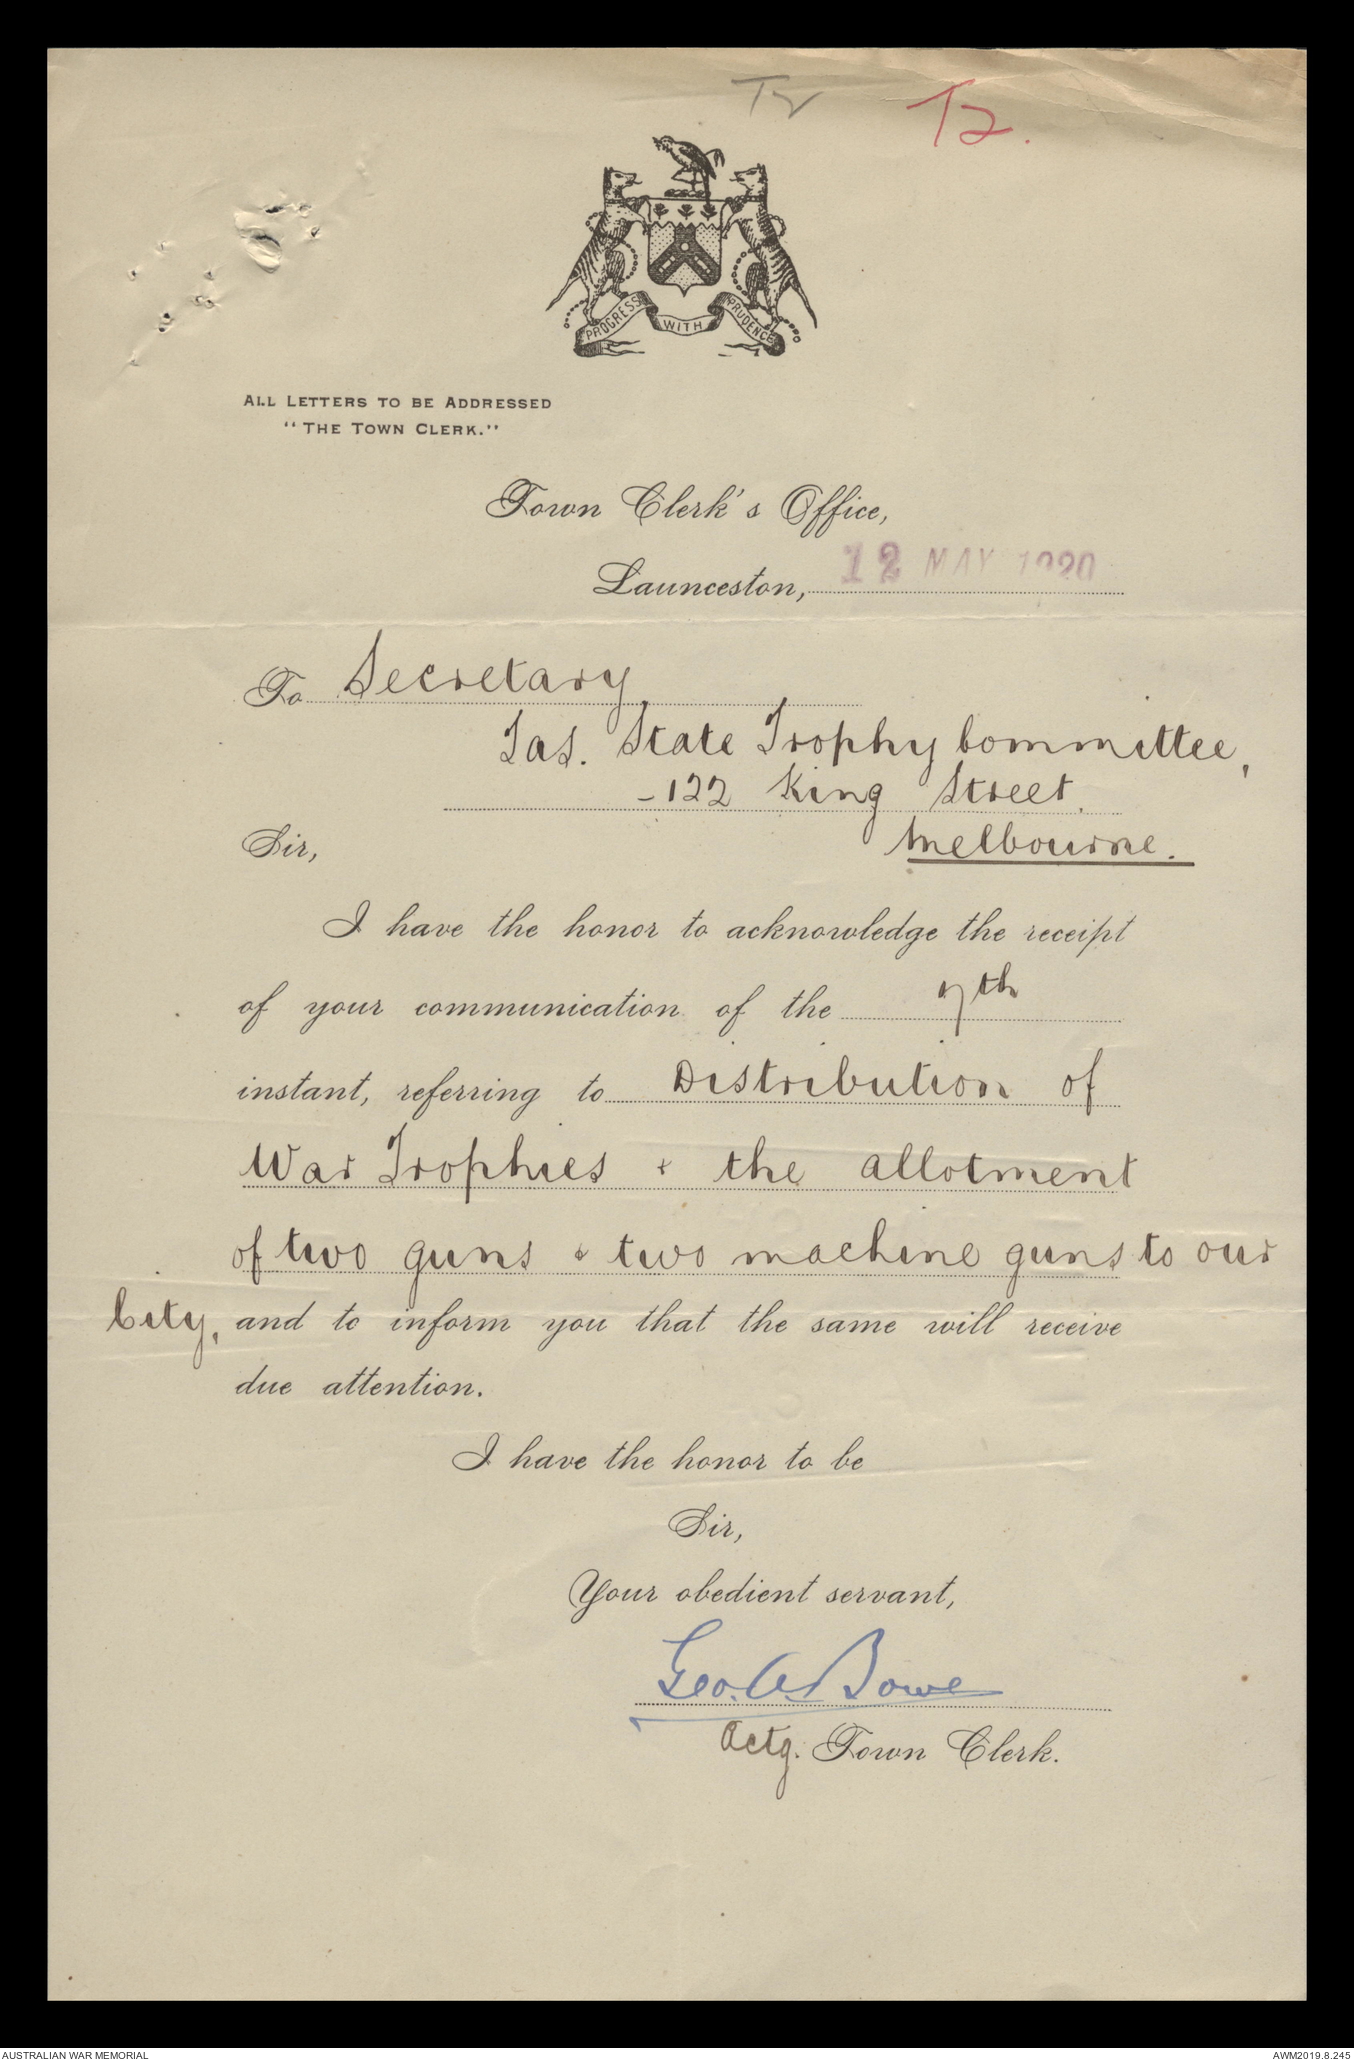 T2
T2.
PROGRESS WITH PRUDENCE
ALL LETTERS TO BE ADDRESSED
"THE TOWN CLERK."
Town Clerk's Office,
Launceston, 12 MAY 1920
To Secretary
Tas. State Trophy Committee,
-122 King Street.
Melbourne.
Sir,
I have the honor to acknowledge the receipt
of your communication of the 7th
instant, referring to Distribution of
War Trophies & the allotment
of two guns & two machine guns to our
City, and to inform you that the same will receive
due attention.
I have the honor to be
Sir,
Your obedient servant,
Geo. A. Bowe
Actg. Town Clerk.
AUSTRALIAN WAR MEMORIAL
AWM2019.8.245